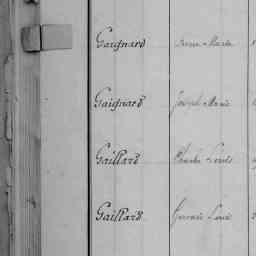 Gaignard Anne Marie
Gaignard Joseph Marie
Gaillard Charles Louis
Gaillard Germain Louis